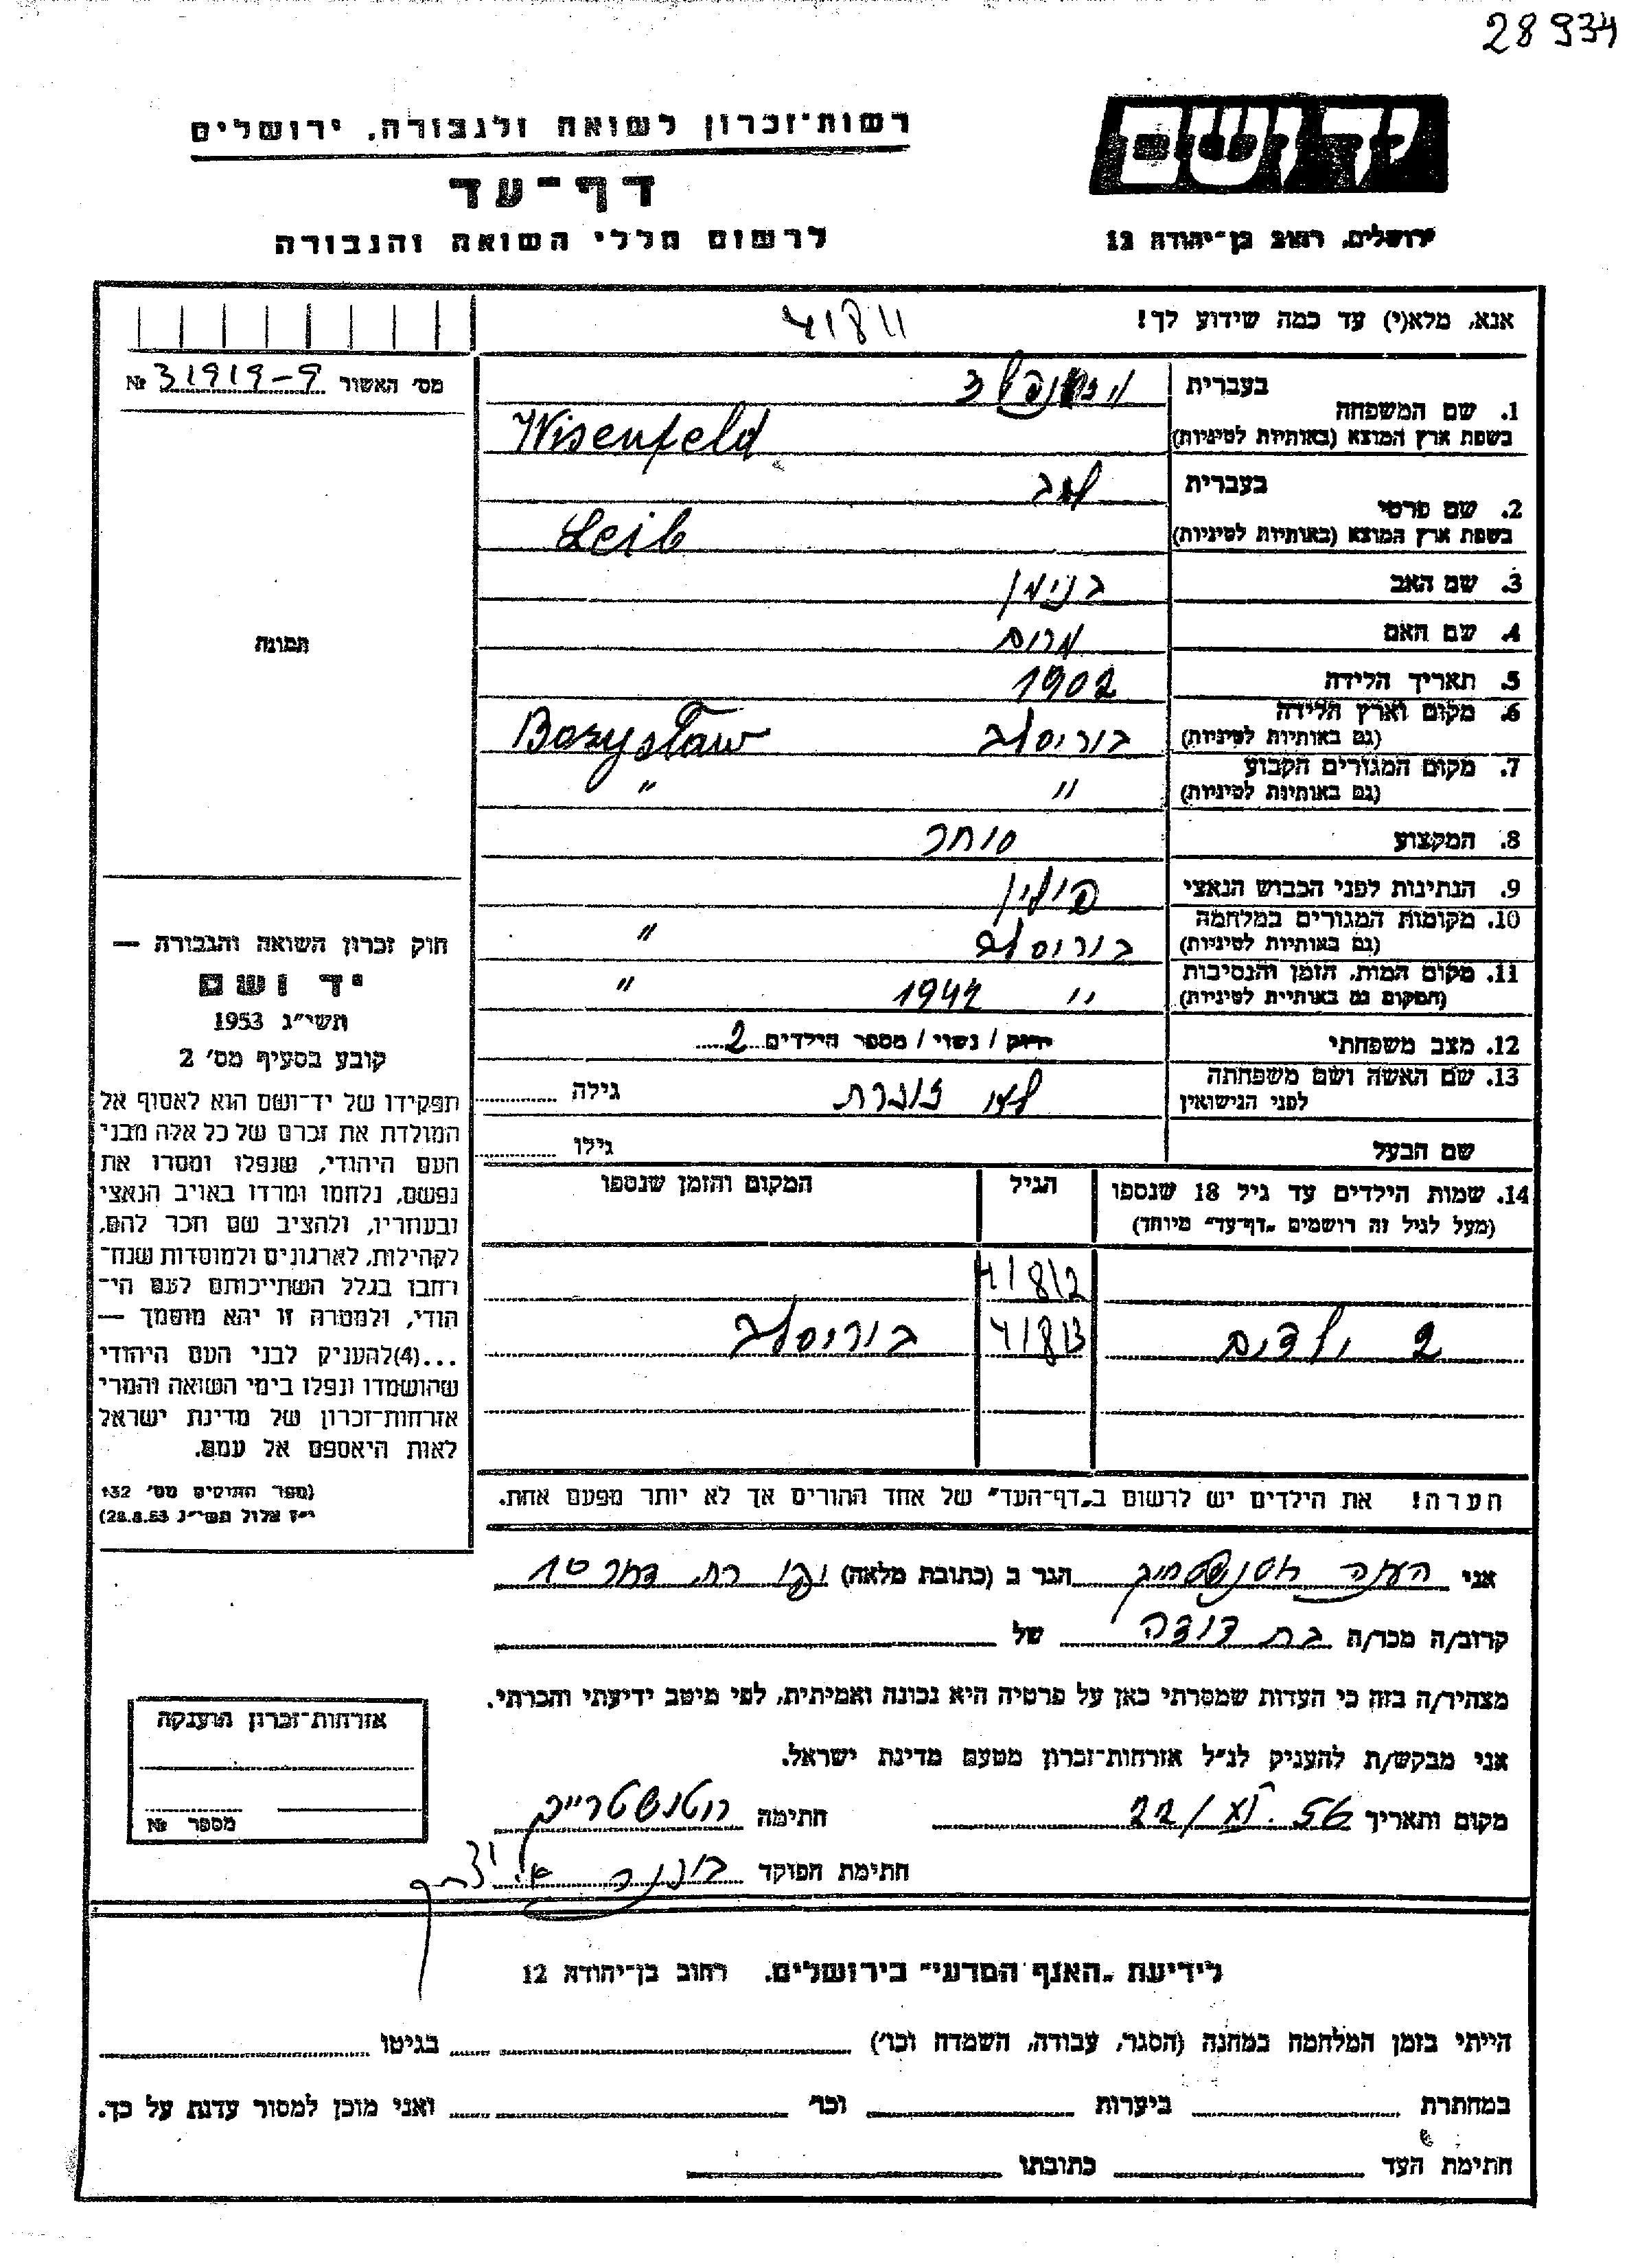 28934
יד ושם
רשות-זכרון לשואה ולגבורה, ירושלים
דף-עד
לרשום חללי השואה והגבורה
ירושלים, רחוב בן-יהודה 12
אנא, מלא(י) עד כמה שידוע לך!
41811
מס' האשור № 31919-9
1. שם המשפחה
בעברית
בשפת ארץ המוצא (באותיות לטיניות) Wisenfeld
2. שם פרטי
בעברית לייב
בשפת ארץ המוצא (באותיות לטיניות) Leib
3. שם האב בנימין
4. שם האם מרים
5. תאריך הלידה 1902
6. מקום וארץ הלידה
(גם באותיות לטיניות) בוריסלב Borysław
7. מקום המגורים הקבוע
(גם באותיות לטיניות) " "
8. המקצוע סוחר
9. הנתינות לפני הכבוש הנאצי פולין
10. מקומות המגורים במלחמה
(גם באותיות לטיניות) בוריסלב "
11. מקום המות, הזמן והנסיבות
(המקום גם באותיות לטיניות) " 1942 "
12. מצב משפחתי רווק / נשוי / מספר הילדים 2
13. שם האשה ושם משפחתה
לפני הנישואין גילה
שם הבעל גילו
14. שמות הילדים עד גיל 18 שנספו
(מעל לגיל זה רושמים "דף-עד" מיוחד)
הגיל
המקום והזמן שנספו
41812
2 ילדים 41813 בוריסלב
הערה! את הילדים יש לרשום ב"דף-העד" של אחד ההורים אך לא יותר מפעם אחת.
תמונה
חוק זכרון השואה והגבורה —
יד ושם
תשי"ג 1953
קובע בסעיף מס' 2
תפקידו של יד-ושם הוא לאסוף אל
המולדת את זכרם של כל אלה מבני
העם היהודי, שנפלו ומסרו את
נפשם, נלחמו ומרדו באויב הנאצי
ובעוזריו, ולהציב שם וזכר להם,
לקהילות, לארגונים ולמוסדות שנח-
רבו בגלל השתייכותם לעם הי-
הודי, ולמטרה זו יהא מוסמך —
...(4)להעניק לבני העם היהודי
שהושמדו ונפלו בימי השואה והמרי
אזרחות-זכרון של מדינת ישראל
לאות היאספם אל עמם.
(ספר החוקים מס' 132
י"ז אלול תשי"ג 28.8.53)
אני הגר ב (כתובת מלאה) 10
קרוב/ה מכר/ה בת דודה של
מצהיר/ה בזה כי העדות שמסרתי כאן על פרטיה היא נכונה ואמיתית, לפי מיטב ידיעתי והכרתי.
אני מבקש/ת להעניק לנ"ל אזרחות-זכרון מטעם מדינת ישראל.
מקום ותאריך 22/XI.56 חתימה
חתימת הפוקד
אזרחות-זכרון הוענקה
מספר №
לידיעת "האגף המדעי" בירושלים, רחוב בן-יהודה 12
הייתי בזמן המלחמה במחנה (הסגר, עבודה, השמדה וכו') בגיטו
במחתרת ביערות וכו' ואני מוכן למסור עדות על כך.
חתימת העד כתובתו